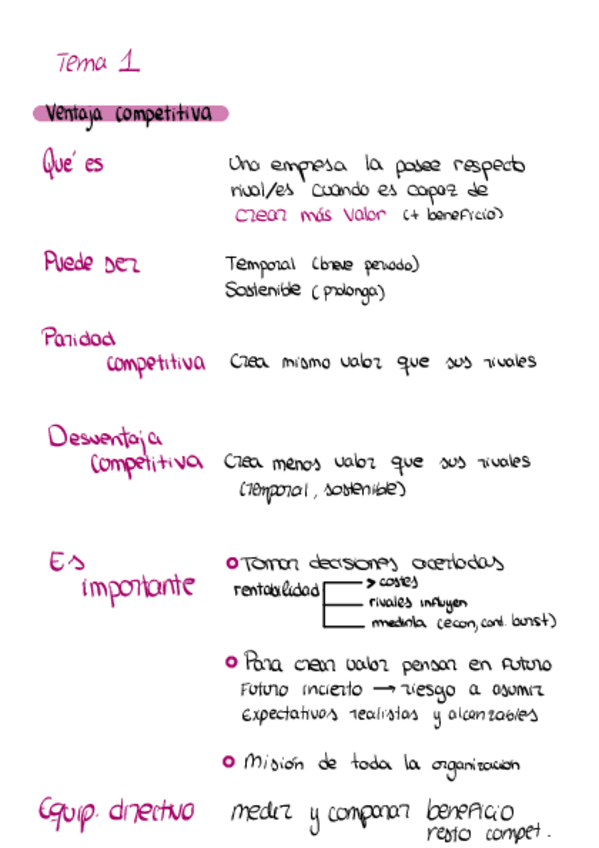 Tema 1
Ventaja competitiva
Qué es
Una empresa la posee respecto
rival/es cuando es capaz de
crear más valor (+ beneficio)
Puede ser
Temporal (breve periodo)
Sostenible (prolonga)
Paridad
competitiva Crea mismo valor que sus rivales
Desventaja
competitiva Crea menos valor que sus rivales
(temporal, sostenible)
Es
importante
Tomar decisiones acertadas
rentabilidad > costes
rivales influyen
medirla (econ, cont.
Para crear valor pensar en futuro
Futuro incierto → riesgo a asumir
Expectativas realistas y alcanzables
Misión de toda la organización
Equip. directivo medir y comparar beneficio
resto compet.